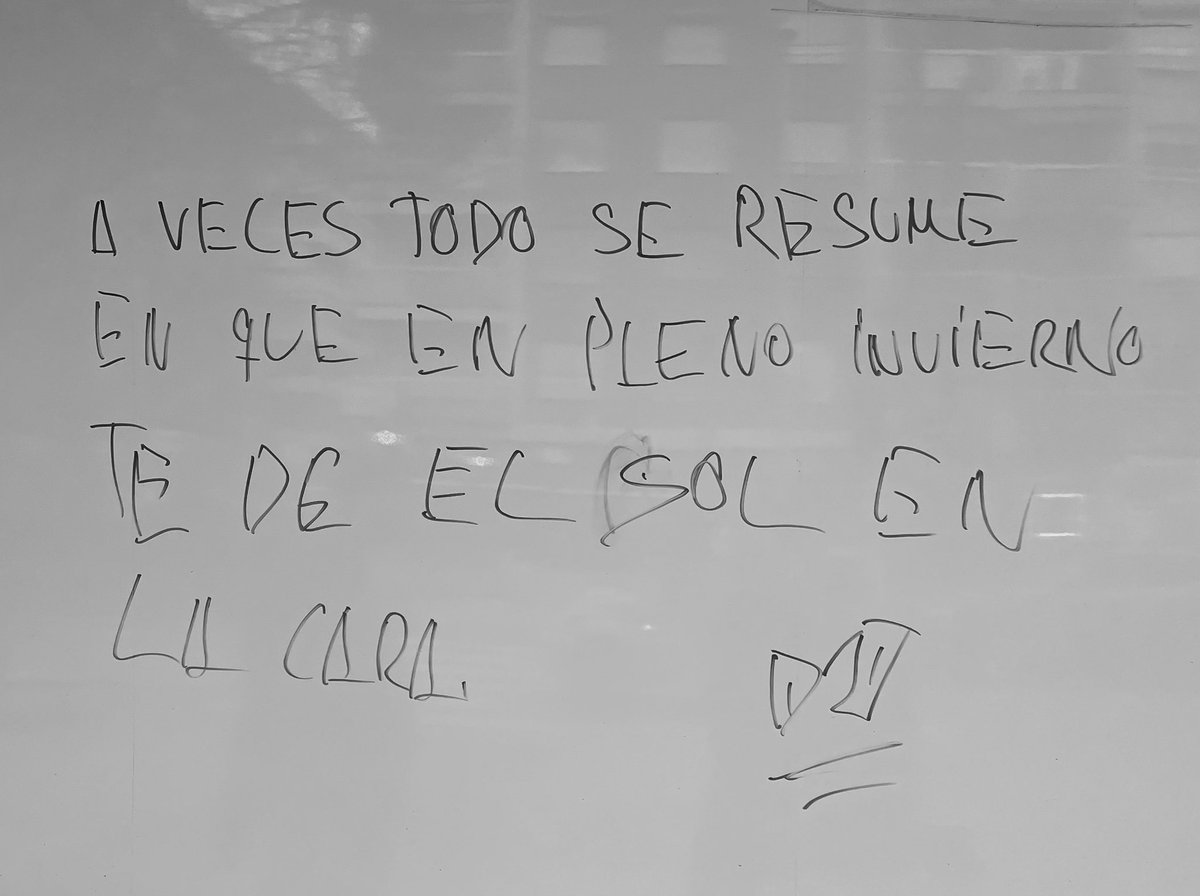 A VECES TODO SE RESUME
EN QUE EN PLENO INVIERNO
TE DE EL SOL EN
LA CARA.